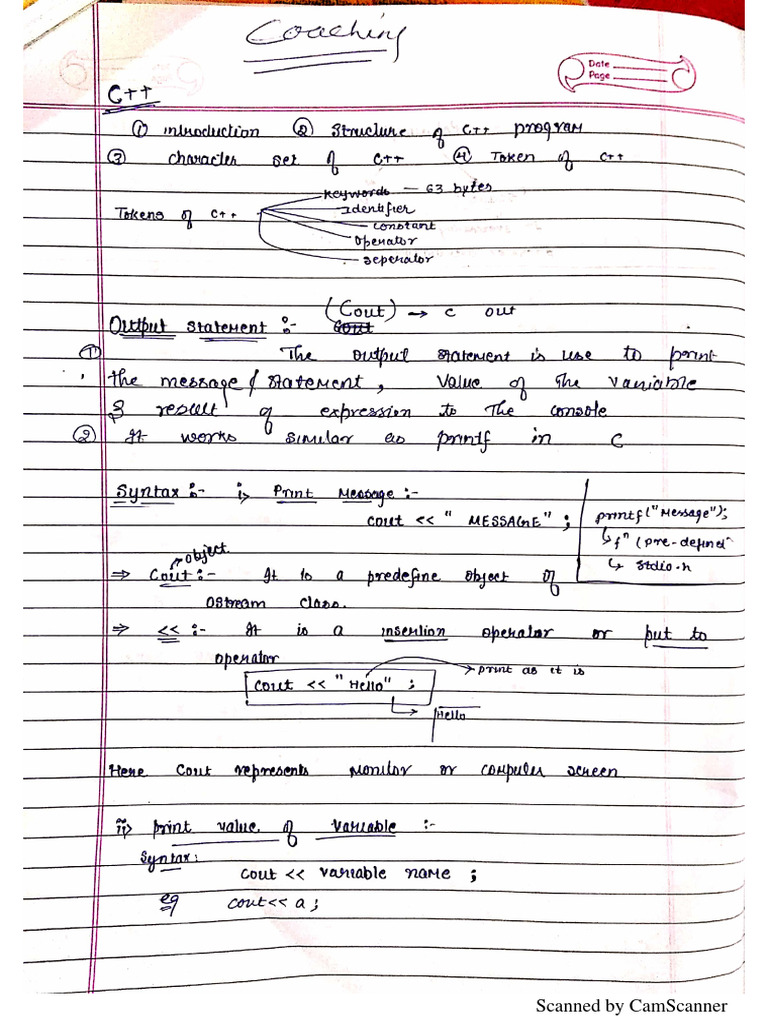 Coaching
Date
Page
C++
① introduction ② Structure of C++ program
③ character set of C++ ④ Token of C++
Keywords — 63 bytes
Tokens of C++
Identifier
constant
operator
seperator
(Cout) → c out
Output statement :- Cout
① The output statement is use to print
the message / statement, value of the variable
& result of expression to the console
② It works similar as printf in C
Syntax :- i) Print Message :-
cout << " MESSAGE" ;
printf("Message");
↳ fⁿ (pre-define
↳ stdio.h
→ object
⇒ Cout :- It is a predefine object of
ostream class.
⇒ << :- It is a insertion operator or put to
operator
→ print as it is
cout << "Hello" ;
Hello
Here Cout represents monitor or computer screen
ii) print value of variable :-
Syntax:
cout << variable name ;
eg cout<< a ;
Scanned by CamScanner